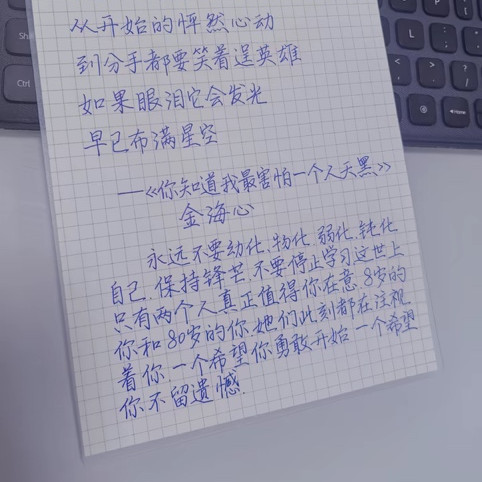 从开始的怦然心动
到分手都要笑着逞英雄
如果眼泪它会发光
早已布满星空
——《你知道我最害怕一个人天黑》
金海心
永远不要幼化、物化、弱化、钝化
自己.保持锋芒.不要停止学习这世上
只有两个人真正值得你在意.8岁的
你和80岁的你.她们此刻都在注视
着你一个希望你勇敢开始一个希望
你不留遗憾.
Shift
Ctrl